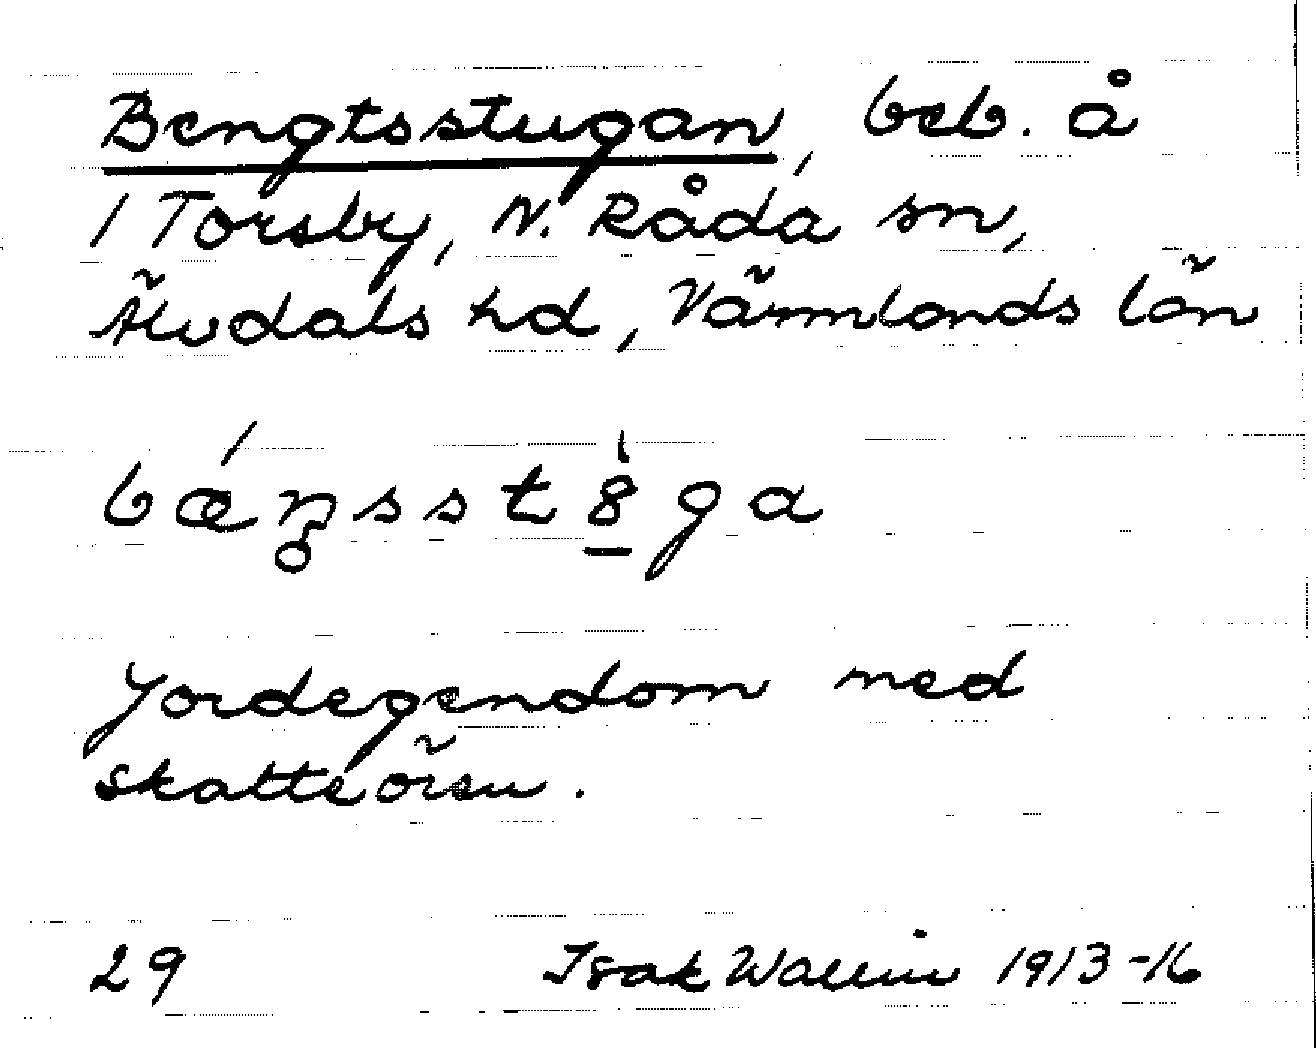 Bengtsstugan, beb. å
1 Torsby, N. Råda sn,
Älvdals hd, Värmlands län
Jordegendom med
skatteören.
29 Isak Wallin 1913-16